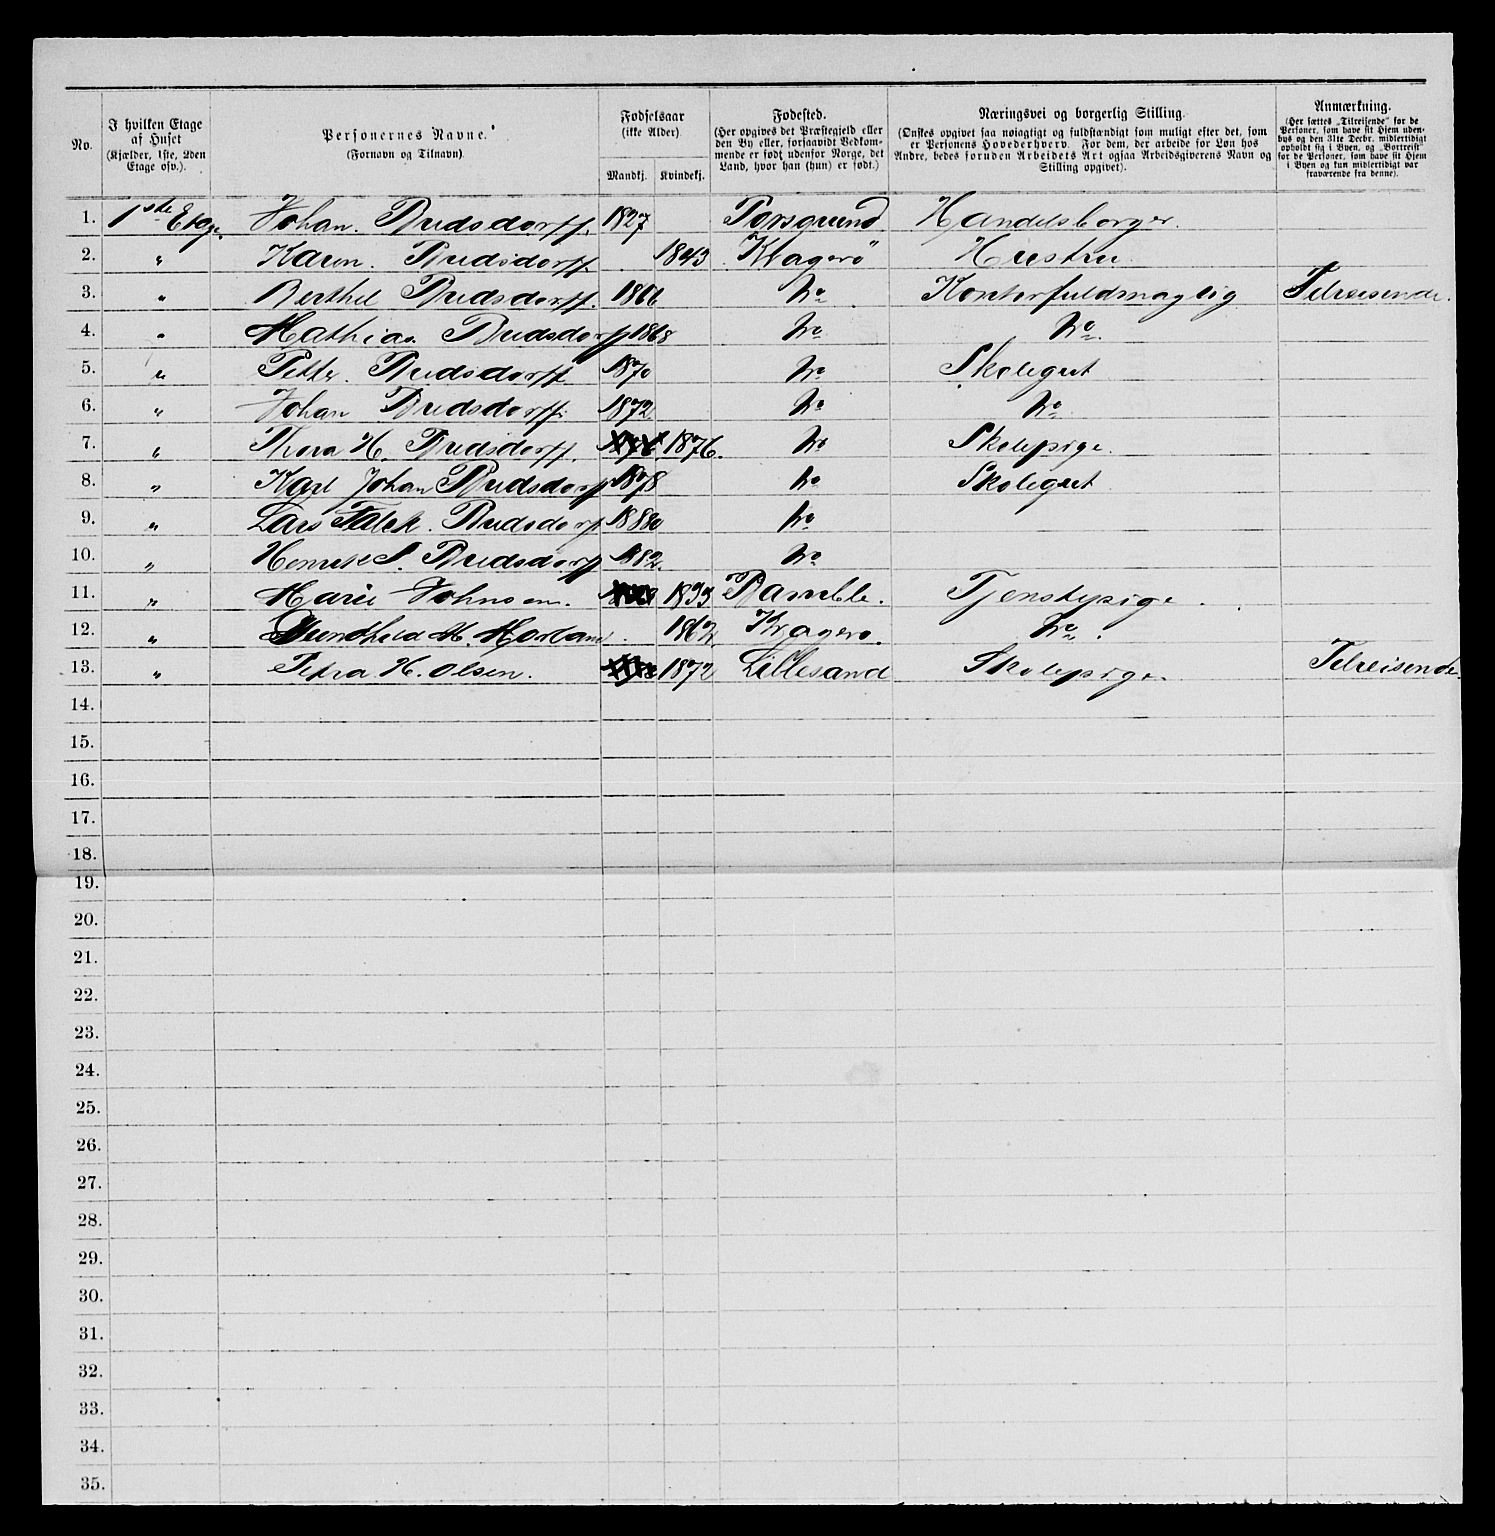 No.
I hvilken Etage af Huset (Kjælder, 1ste, 2den Etage osv.).
Personernes Navne. (Fornavn og Tilnavn)
Fødselsaar (ikke Alder)
Mandkj. Kvindekj.
Fødested. (Her opgives det Præstegjeld eller den By eller, forsaavidt Vedkommende er født udenfor Norge, det Land, hvor han (hun) er født.)
Næringsvei og borgerlig Stilling. (Ønskes opgivet saa nøiagtigt og fuldstændigt som muligt efter det, som er Personens Hovederhverv. For dem, der arbeide for Løn hos Andre, bedes foruden Arbeidets Art ogsaa Arbeidsgiverens Navn og Stilling opgivet).
Anmærkning. (Her sættes „Tilreisende" for de Personer, som have sit Hjem udenbys og den 31te Decbr. midlertidigt opholdt sig i Byen, og „Bortreist" for de Personer, som have sit Hjem i Byen og kun midlertidigt var fraværende fra denne).
1. 1ste Etage Johan. Bredsdorff. 1827 Porsgrund Handelsborger.
2. " Karen. Bredsdorff 1843 Kragerø Hustru
3. " Berthel Bredsdorff. 1866 do Kontorfuldmægtig Tilreisende.
4. " Mathias. Bredsdorff 1868 do do
5. " Petter. Bredsdorff 1870 do Skolegut
6. " Johan Bredsdorff. 1872 do do
7. " Thora H. Bredsdorff. 1876. do Skolepige.
8. " Karl Johan Bredsdorff 1878 do Skolegut
9. " Lars Falck. Bredsdorff 1880 do
10. " S. Bredsdorff 1882. do
11. " Marie Johnsen. 1833 Bamble. Tjenstepige.
12. " M. 1862. Kragerø. do.
13. " Petra H. Olsen. 1872 Lillesand Skolepige. Tilreisende.
14.
15.
16.
17.
18.
19.
20.
21.
22.
23.
24.
25.
26.
27.
28.
29.
30.
31.
32.
33.
34.
35.